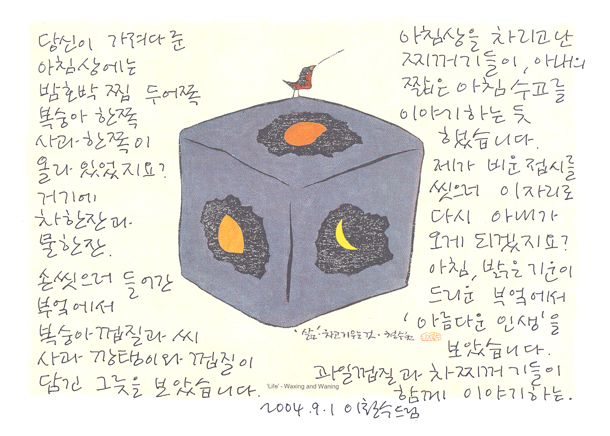 당신이 가져다 준
아침상에는
밤호박 찜 두어쪽
복숭아 한쪽
사과 한쪽이
올라 있었지요?
거기에
차한잔과
물한잔.
손씻으러 들어간
부엌에서
복숭아껍질과 씨
사과 깡탱이와 껍질이
담긴 그릇을 보았습니다.
아침상을 차리고난
찌꺼기들이, 아내의
짧은 아침 수고를
이야기하는 듯
했습니다.
제가 비운 접시를
씻으러 이자리로
다시 아내가
오게 되겠지요?
아침, 밝은 기운이
드리운 부엌에서
'아름다운 인생'을
보았습니다.
과일껍질과 차찌꺼기들이
함께 이야기하는.
2004.9.1 이철수드림
'삶' 차고 기우는 것 · 철수
'Life' - Waxing and Waning